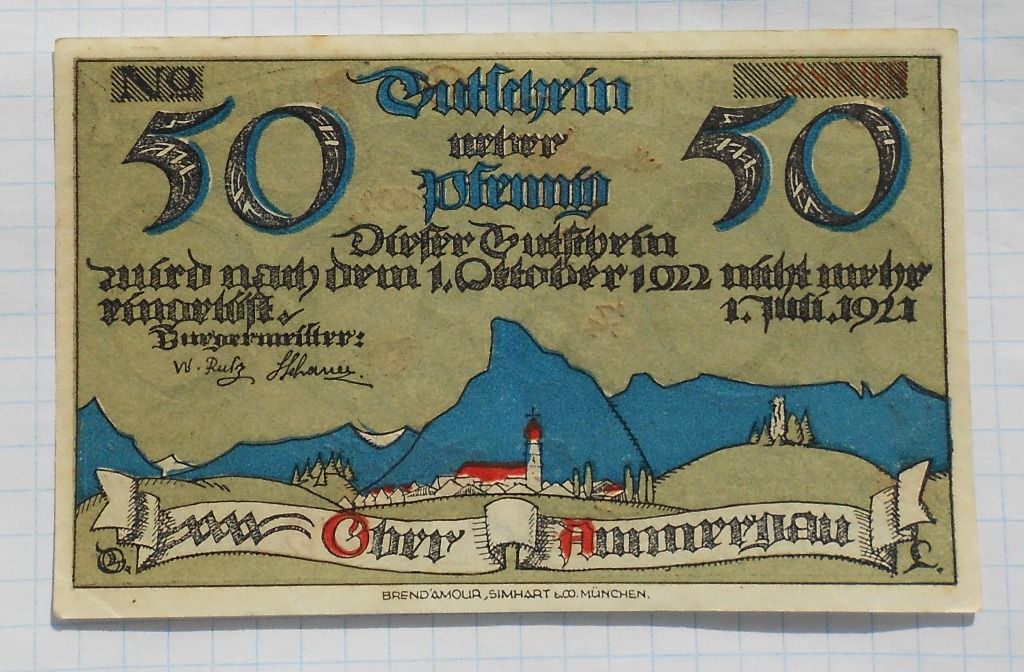 No
50 Gutschein 50
ueber
Pfennig
Dieser Gutschein
wird nach dem 1. Oktober 1922 nicht mehr
eingelöst.
1. Juli. 1921
Burgermeister:
W. Rutz
Ober Ammergau
BREND'AMOUR, SIMHART & CO. MÜNCHEN.